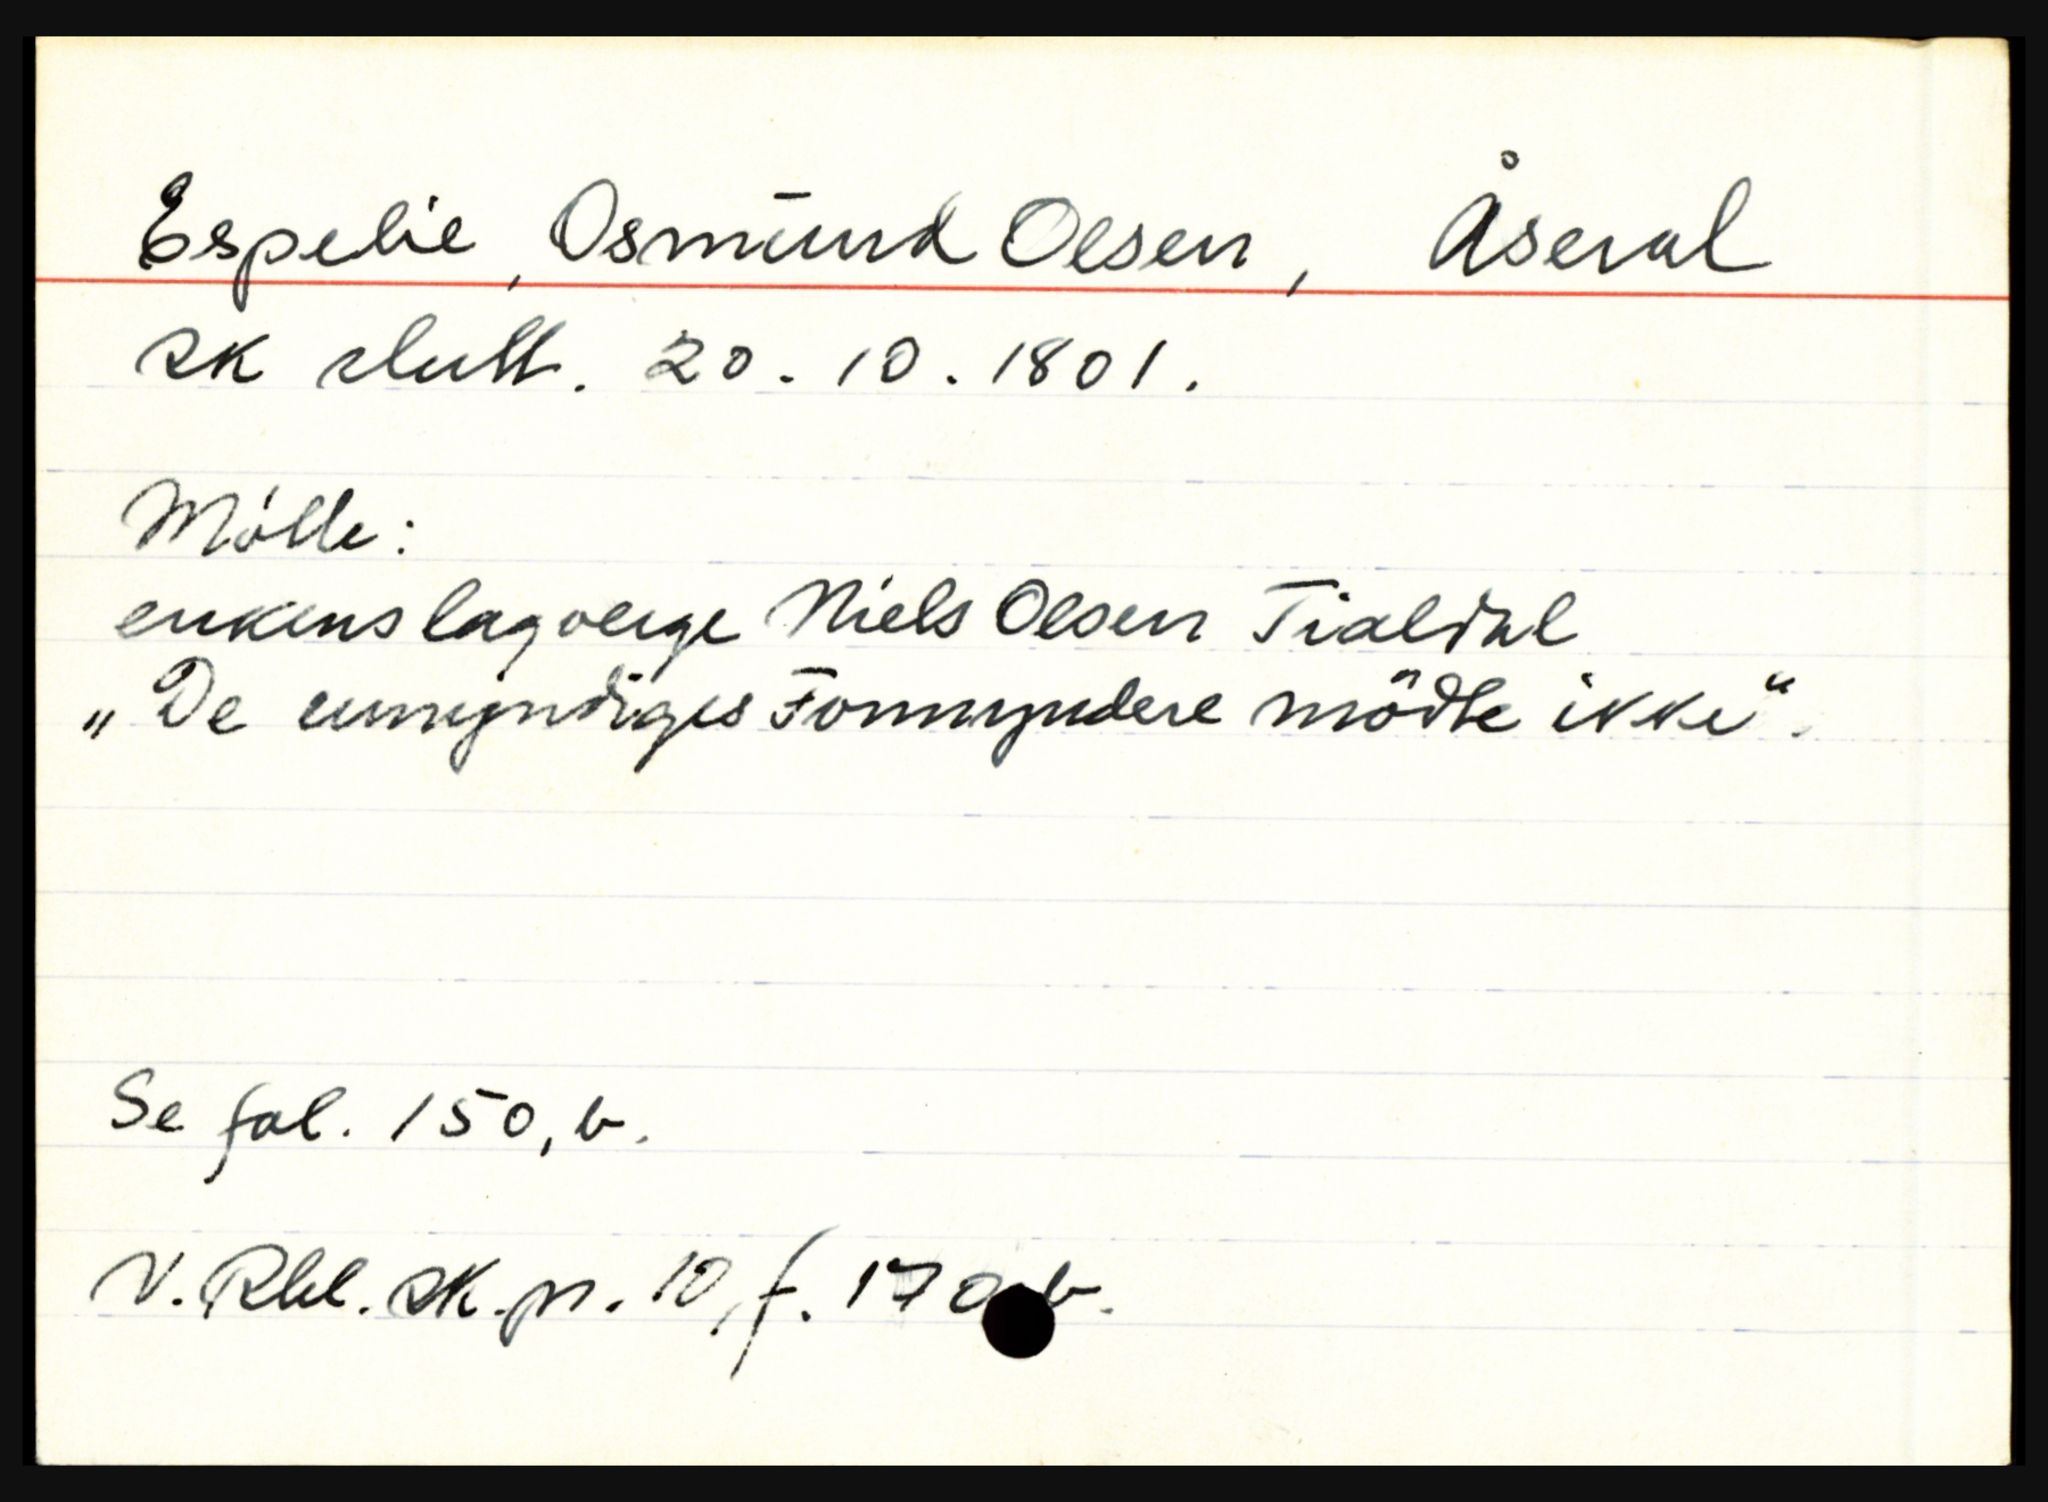 Espelie, Osmund Olsen, Åseral
sk slutt. 20.10.1801.
Mötte:
enkens lagverge Niels Olsen Tialdal
„De umyndiges Formyndere mödte ikke“.
Se fol. 150,b.
V. Rbl. sk.pr. 10, f. 170 b.